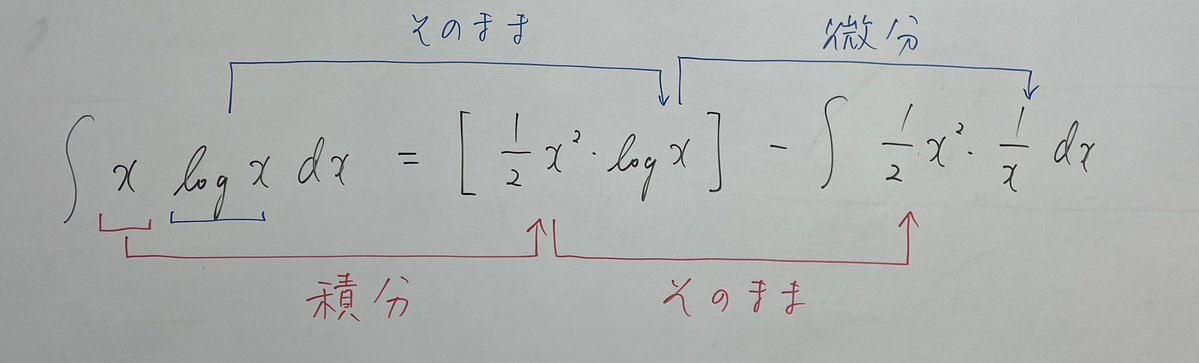 そのまま 微分
∫ x log x dx = [ 1/2 x² · log x ] - ∫ 1/2 x² · 1/x dx
積分 そのまま